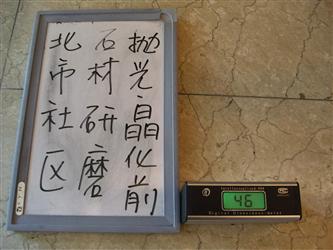 北市社区
石材研磨
抛光晶化前
46
Digital